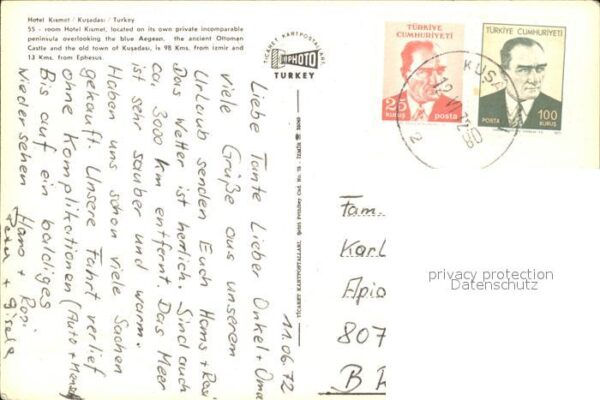 Hotel Kısmet / Kuşadası / Turkey
55 - room Hotel Kısmet, located on its own private incomparable
peninsula overlooking the blue Aegean, the ancient Ottoman
Castle and the old town of Kuşadası, is 98 Kms, from İzmir and
13 Kms. from Ephesus
TİCARET KARTPOSTALLARI
PHOTO
TURKEY
TÜRKİYE CUMHURİYETİ
25
KURUŞ
posta
TÜRKİYE CUMHURİYETİ
POSTA
100
KURUŞ
KUŞA
Liebe Tante Lieber Onkel + Oma
viele Grüße aus unserem
Urlaub senden Euch Hans + Rosi
Das Wetter ist herrlich. Sind auch
ca. 3000 km entfernt. Das Meer
ist sehr sauber und warm.
Haben uns schon viele Sachen
gekauft. Unsere Fahrt verlief
ohne Komplikationen (Auto + Mensch)
Bis auf ein baldiges
Wiedersehen Hans + Rosi
Peter + Gisela
11.06.72
TİCARET KARTPOSTALLARI.
Fam.
Karl
Apio
807
privacy protection
Datenschutz